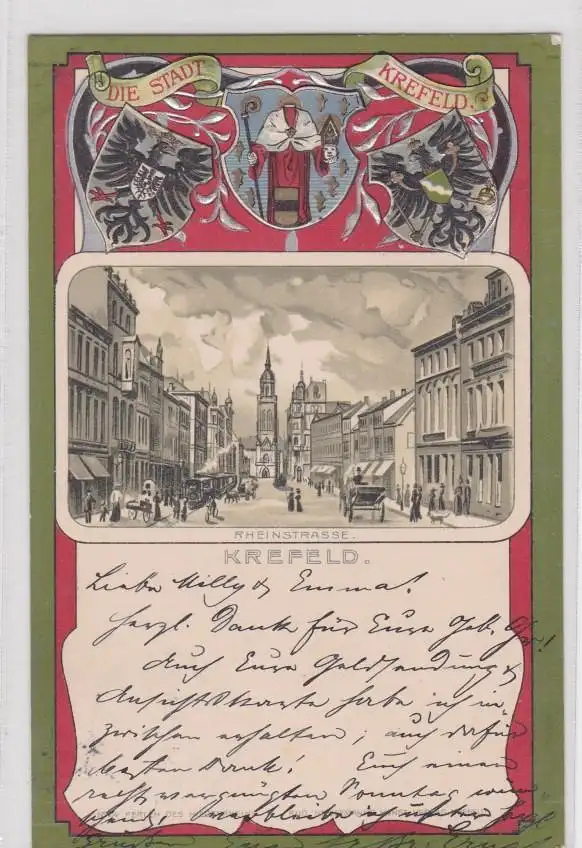 DIE STADT
KREFELD.
RHEINSTRASSE.
KREFELD.
Liebe Milly & Emma!
Herzl. Dank für Eure Geb. Gr.!
Auch Eure Geldsendung &
Ansichtskarte habe ich in
zwischen erhalten; auch dafür
besten Dank! Euch einen
recht vergnügten Sonntag wün
schend, verbleibe